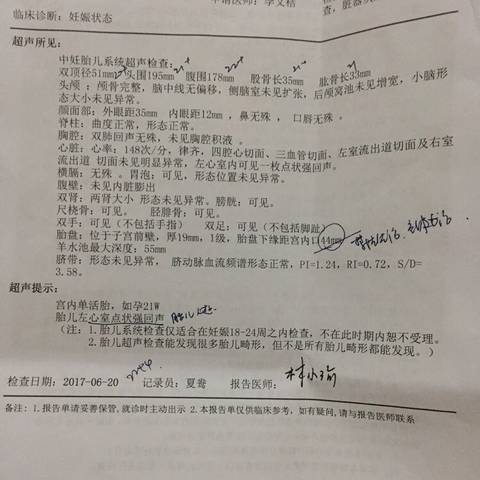 申请医师：李文
临床诊断：妊娠状态
查，脏器
超声所见：
中妊胎儿系统超声检查：
双顶径51mm 头围195mm 腹围178mm 股骨长35mm 肱骨长33mm
头颅 ：颅骨完整，脑中线无偏移，侧脑室未见扩张，后颅窝池未见增宽，小脑形
态大小未见异常。
颜面部：外眼距35mm 内眼距12mm ，鼻无殊 ，口唇无殊 。
脊柱：曲度正常，形态正常。
胸腔：双肺回声无殊，未见胸腔积液 。
心脏：心率：148次/分，律齐，四腔心切面、三血管切面、左室流出道切面及右室
流出道 切面未见明显异常，左心室内可见一枚点状强回声。
横膈：无殊 。胃泡：可见，形态位置未见异常。
腹壁：未见内脏膨出
双肾：两肾大小 形态未见异常。膀胱：可见。
尺桡骨：可见。 胫腓骨：可见。
双手：可见（不包括手指） 双足：可见（不包括脚趾）
胎盘：位于子宫前壁，厚19mm，1级，胎盘下缘距宫内口44mm
羊水池最大深度：55mm
脐带：形态未见异常， 脐动脉血流频谱形态正常，PI=1.24，RI=0.72，S/D=
3.58。
超声提示：
宫内单活胎，如孕21W
胎儿左心室点状强回声
（注：1.胎儿系统检查仅适合在妊娠18-24周之内检查，不在此时期内恕不受理。
2.胎儿超声检查能发现很多胎儿畸形，但不是所有胎儿畸形都能发现。）
检查日期：2017-06-20 记录员：夏鸯 报告医师：
备注：1.报告单请妥善保管,就诊时主动出示 2.本报告单仅供临床参考，如有疑问,请与报告医师联系